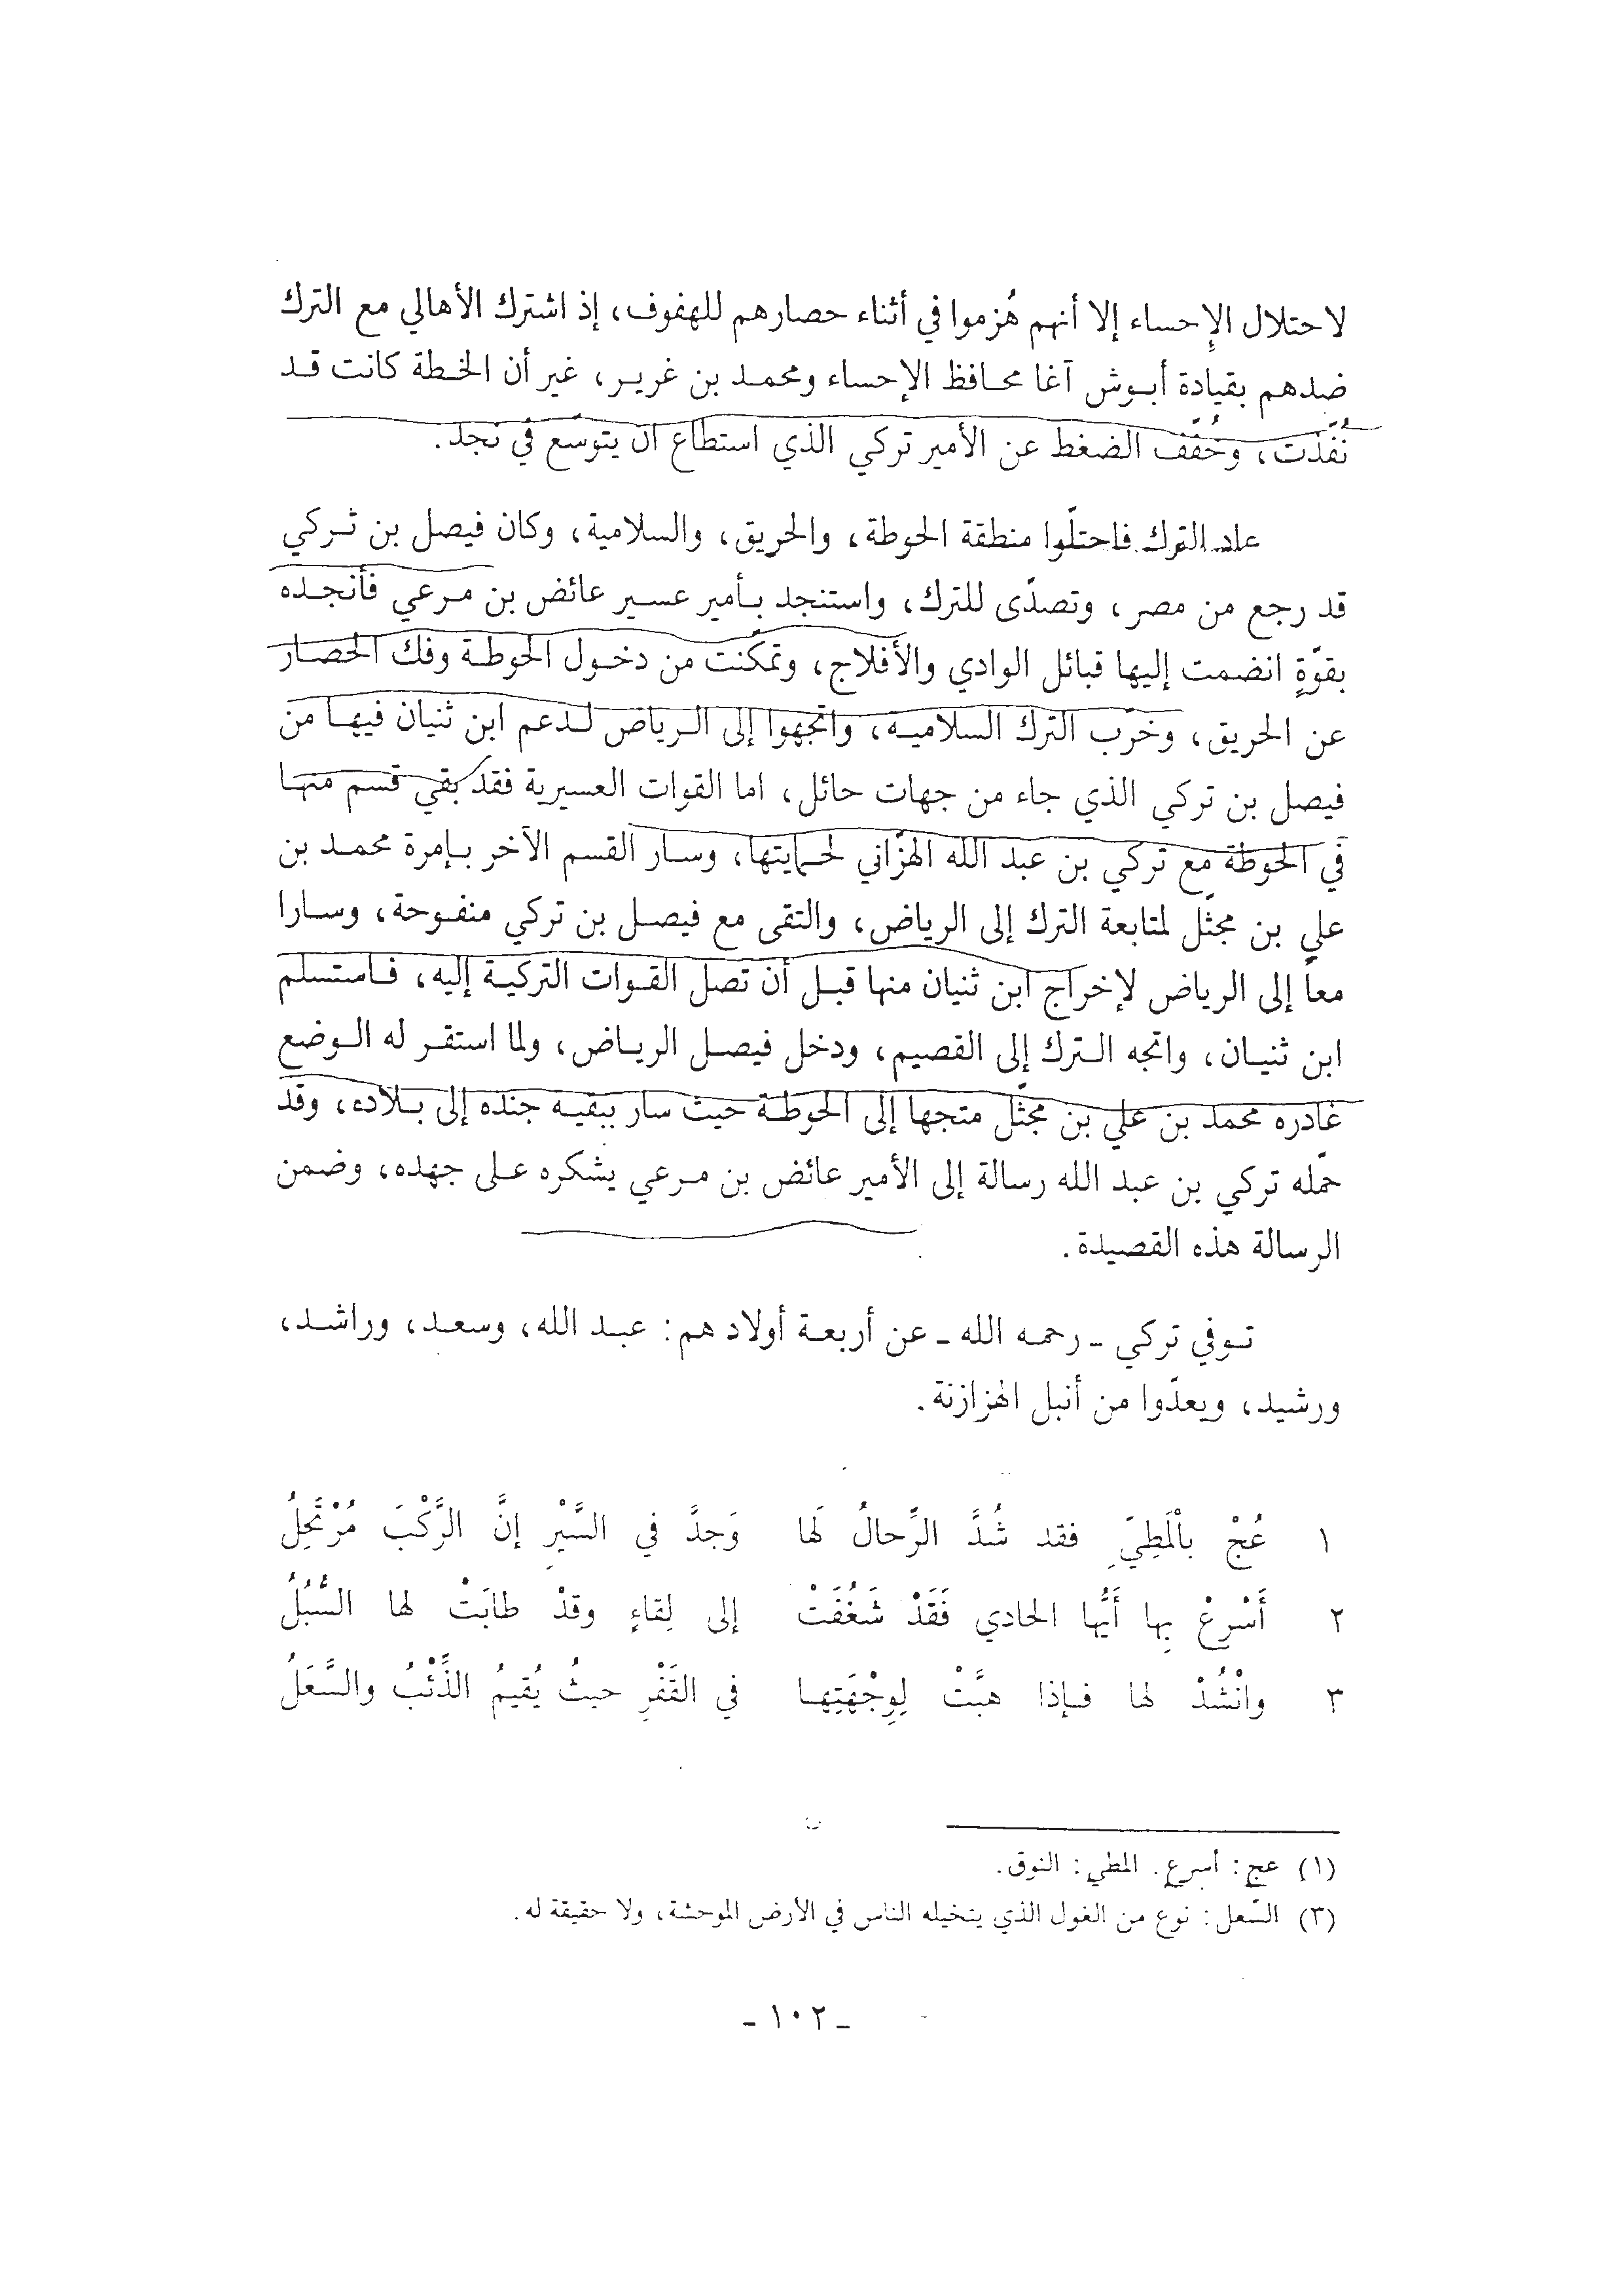 لاحتلال الإِحساء إلا أنهم هُزموا في أثناء حصارهم للهفوف، إذ اشترك الأهالي مع الترك
ضدهم بقيادة أبوش آغا محافظ الإحساء ومحمد بن غرير، غير أن الخطة كانت قد
نُفّذت، وخُفّف الضغط عن الأمير تركي الذي استطاع أن يتوسّع في نجد.
عاد الترك فاحتلّوا منطقة الحوطة، والحريق، والسلامية، وكان فيصل بن تركي
قد رجع من مصر، وتصدّى للترك، واستنجد بأمير عسير عائض بن مرعي فأنجده
بقوّةٍ انضمت إليها قبائل الوادي والأفلاج، وتمكّنت من دخول الحوطة وفك الحصار
عن الحريق، وخرّب الترك السلامية، واتجهوا إلى الرياض لدعم ابن ثنيان فيها من
فيصل بن تركي الذي جاء من جهات حائل، اما القوات العسيرية فقد بقي قسم منها
في الحوطة مع تركي بن عبد الله الهزّاني لحمايتها، وسار القسم الآخر بإمرة محمد بن
علي بن مجثّل لمتابعة الترك إلى الرياض، والتقى مع فيصل بن تركي منفوحة، وسارا
معاً إلى الرياض لإخراج ابن ثنيان منها قبل أن تصل القوات التركية إليه، فاستسلم
ابن ثنيان، واتجه الترك إلى القصيم، ودخل فيصل الرياض، ولما استقر له الوضع
غادره محمد بن علي بن مجثّل متجها إلى الحوطة حيث سار ببقية جنده إلى بلاده، وقد
حمّله تركي بن عبد الله رسالة إلى الأمير عائض بن مرعي يشكره على جهده، وضمن
الرسالة هذه القصيدة.
توفي تركي - رحمه الله - عن أربعة أولاد هم: عبد الله، وسعد، وراشد،
ورشيد، ويعدّوا من أنبل الهزازنة.
١ عُجْ بِاْلمَطِيّ فقد شُدَّ الرِّحالُ لَها وَجدَّ في السَّيْرِ إنَّ الرَّكْبَ مُرْتَحِلُ
٢ أَسْرِعْ بِها أَيُّها الحادي فَقَدْ شَغُفَتْ إلى لِقاءٍ وقدْ طابَتْ لها السُّبُلُ
٣ وانْشُدْ لها فإذا هبَّتْ لِوِجْهَتِها في القَفْرِ حيثُ يُقيمُ الذِّئْبُ والسَّعَلُ
(١) عج: أسرع. المطي: النوق.
(٣) السّعل: نوع من الغول الذي يتخيله الناس في الأرض الموحشة، ولا حقيقة له.
- ١٠٢ -